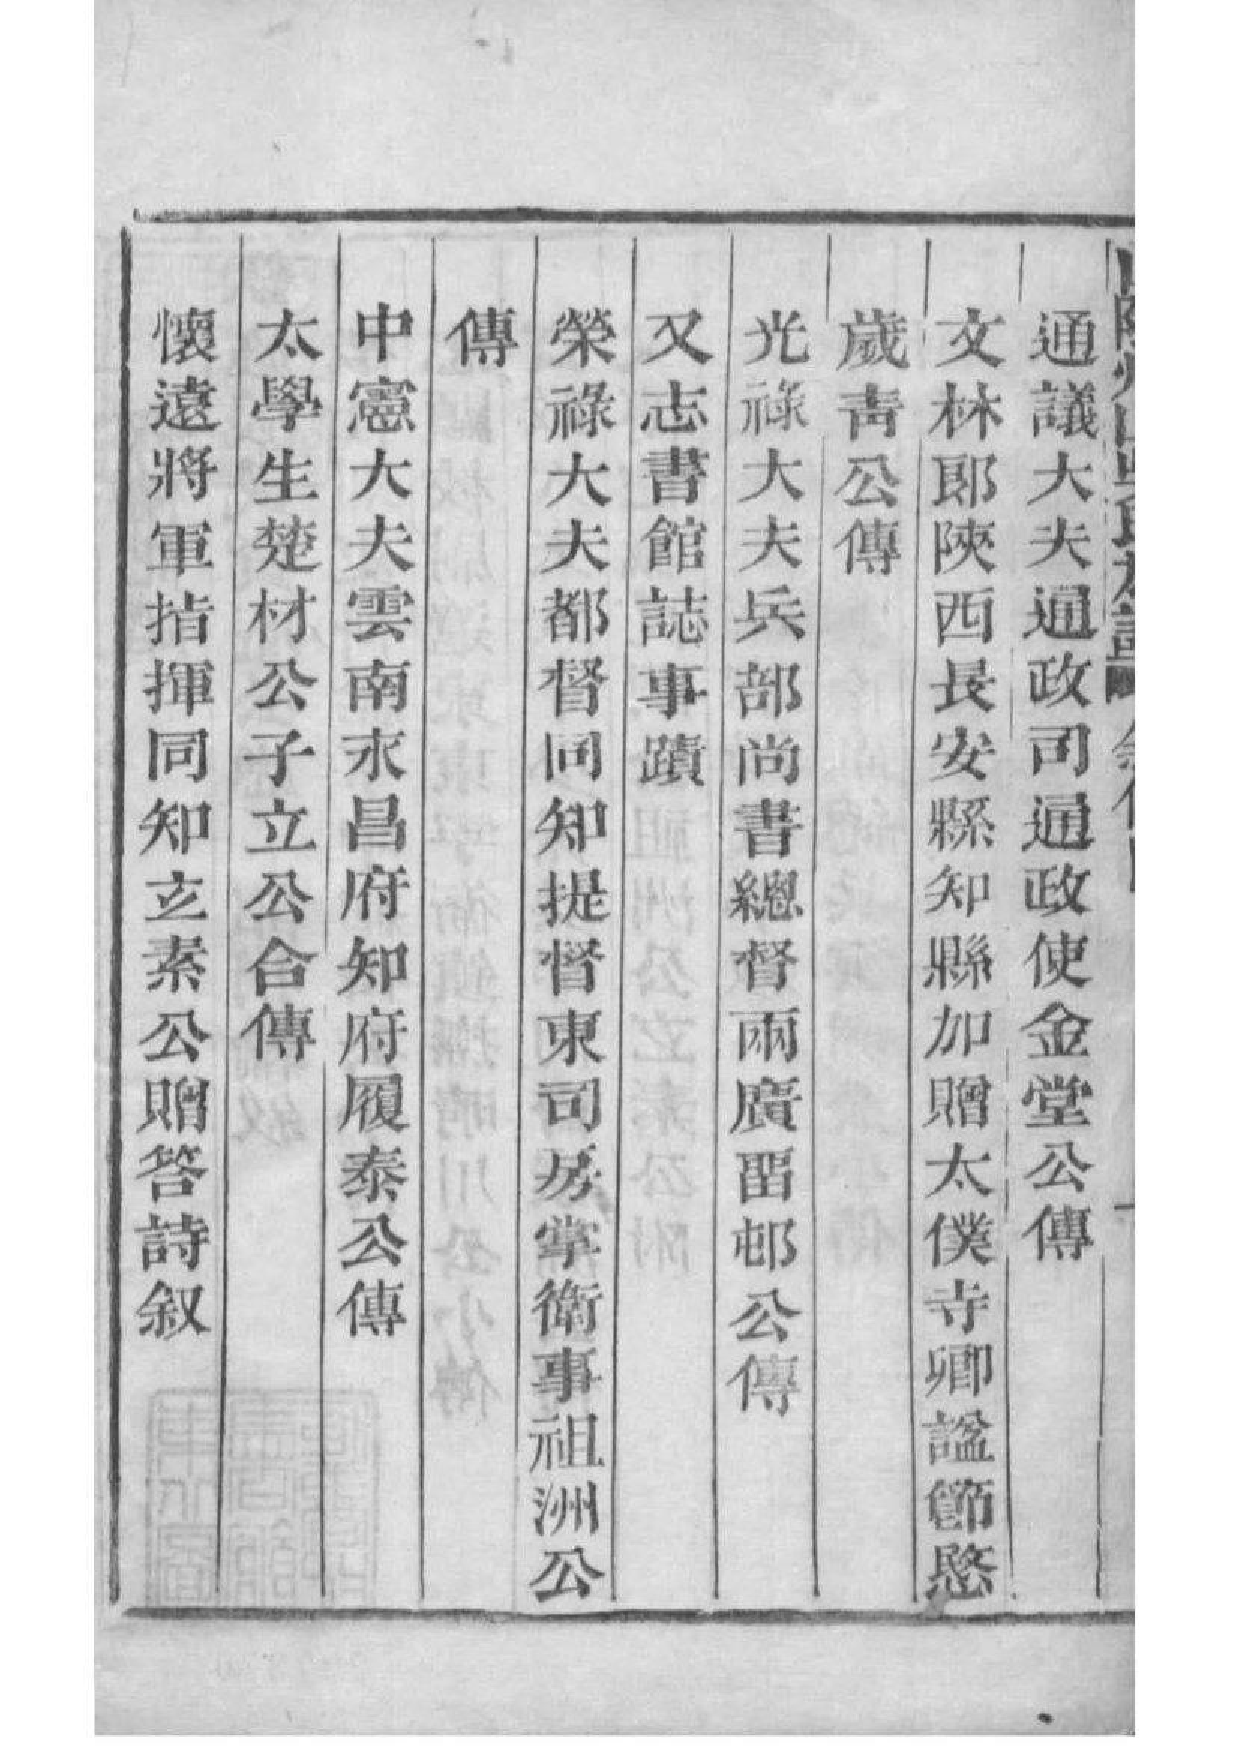 通議大夫通政司通政使金堂公傳
文林郎陝西長安縣知縣加贈太僕寺卿諡節愍
歲靑公傳
光祿大夫兵部尚書總督兩廣畱邨公傳
又志書館誌事蹟
榮祿大夫都督同知提督東司房掌衛事祖洲公
傳
中憲大夫雲南永昌府知府履泰公傳
太學生楚材公子立公合傳
懷遠將軍指揮同知玄素公贈答詩叙